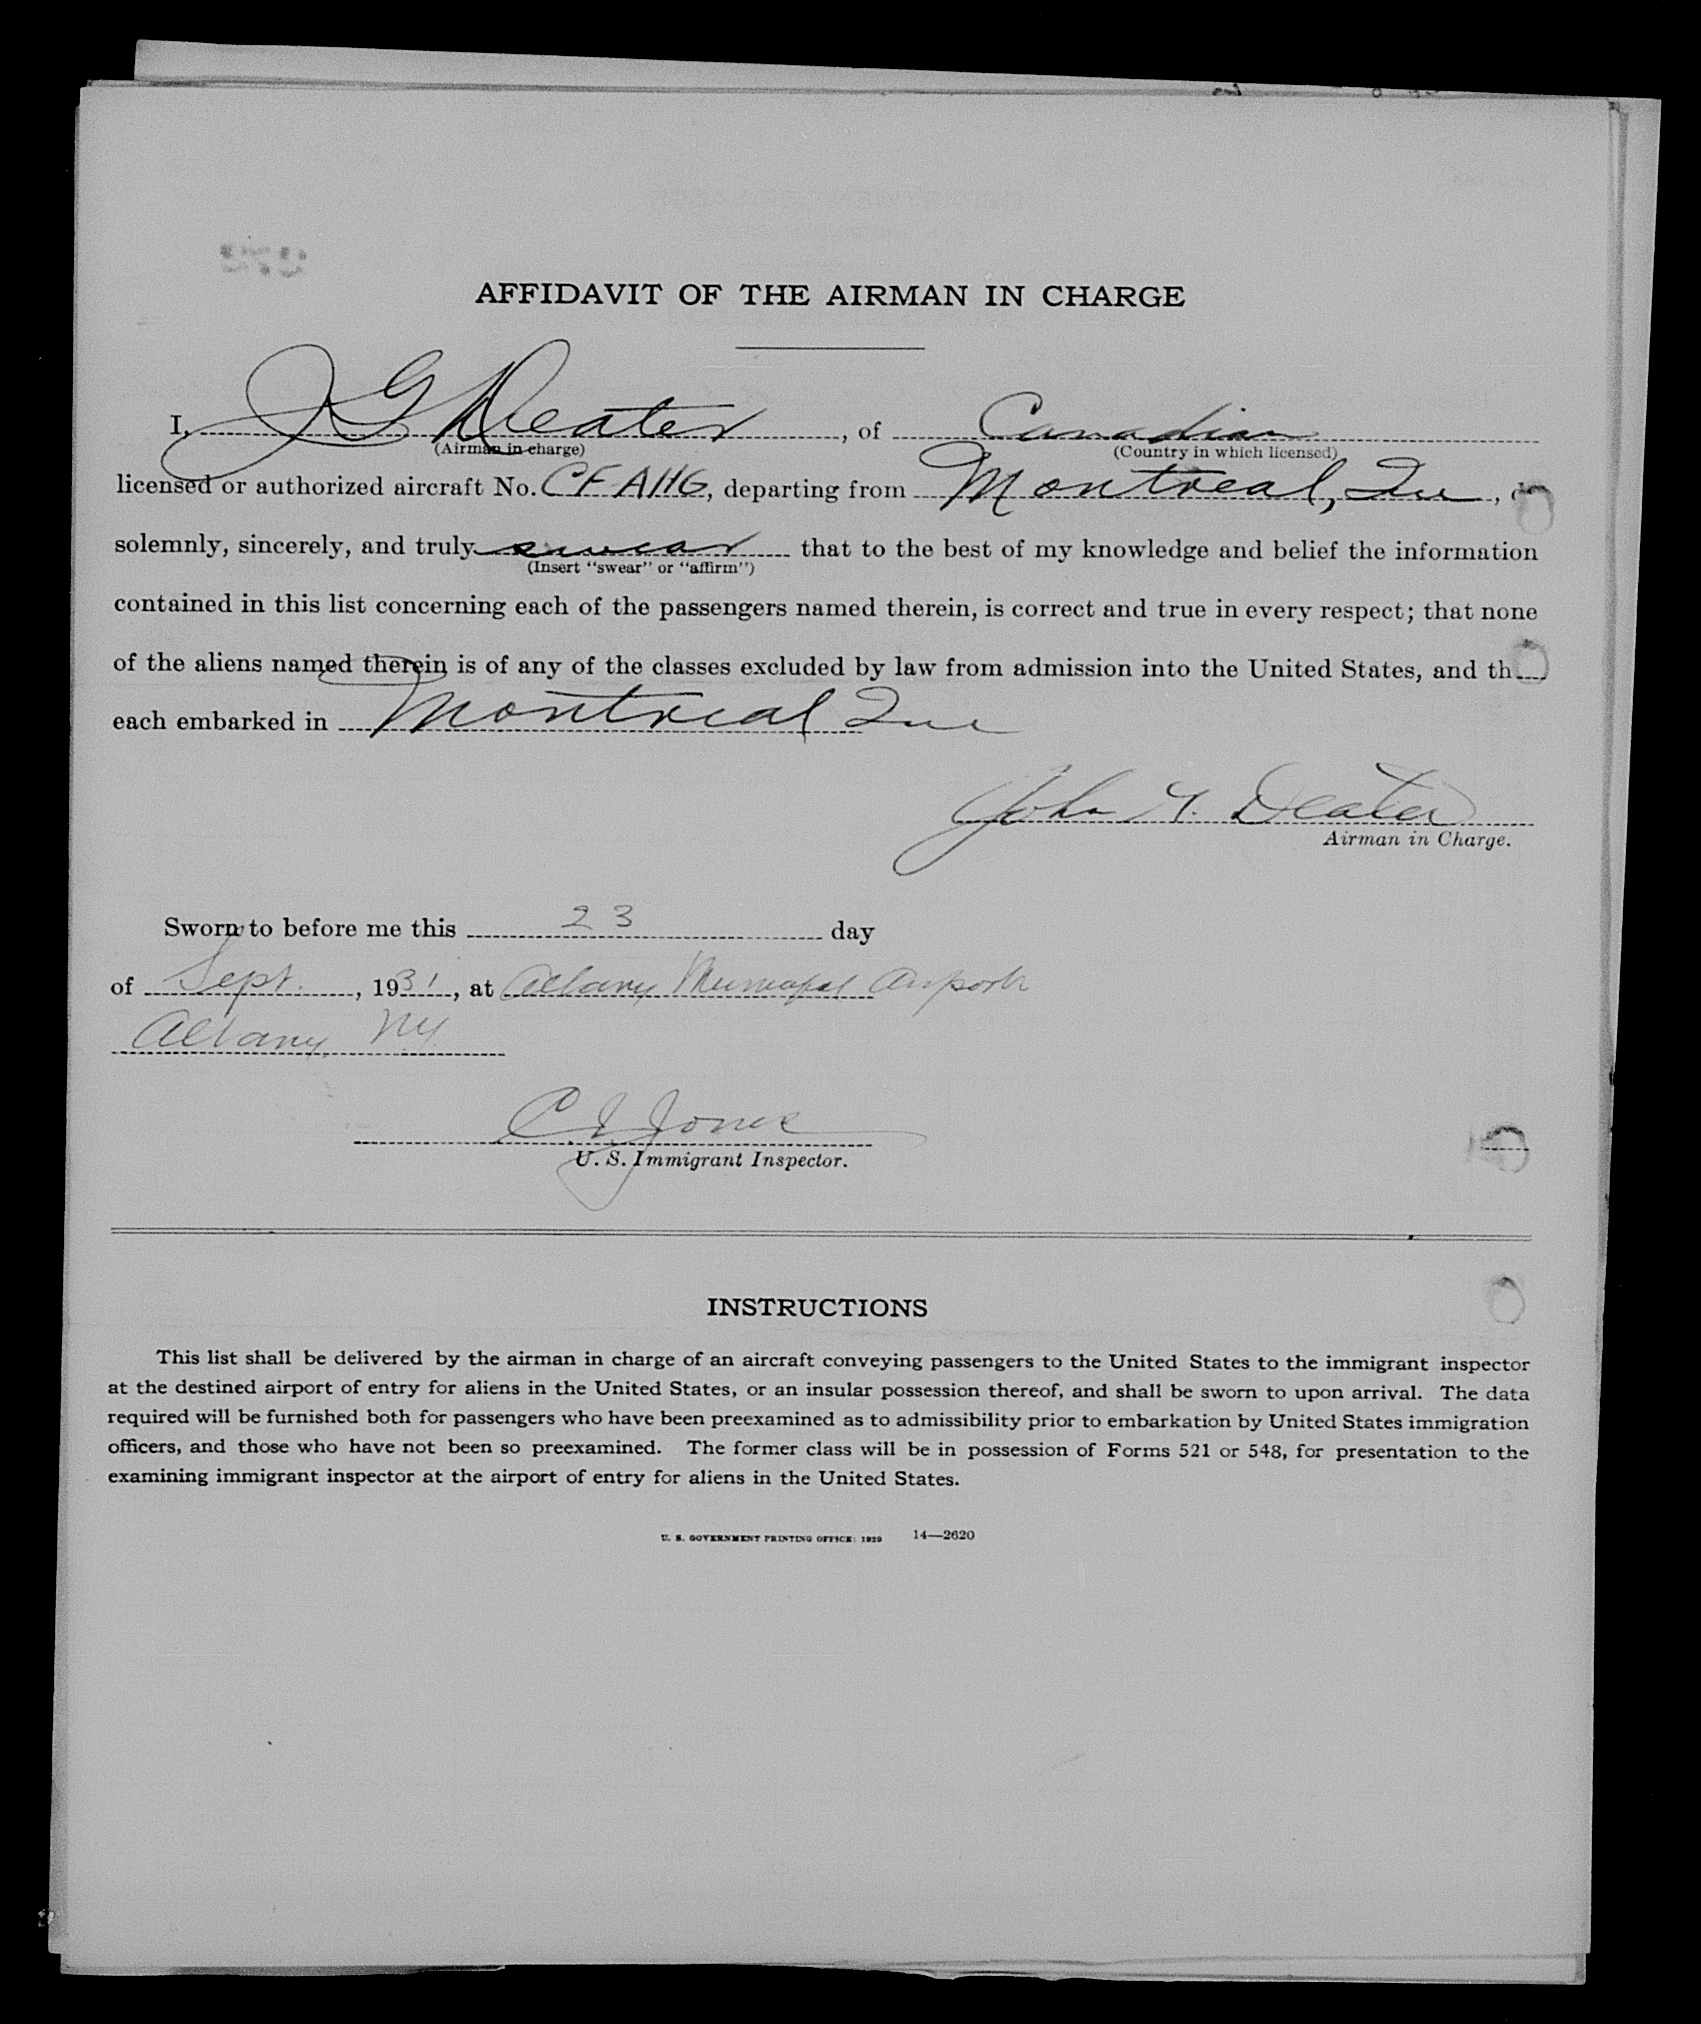 AFFIDAVIT OF THE AIRMAN IN CHARGE
I, J G Deater, of Canadian
(Airman in charge) (Country in which licensed)
licensed or authorized aircraft No. CF AHG, departing from Montreal, Que,
solemnly, sincerely, and truly swear that to the best of my knowledge and belief the information
(Insert "swear" or "affirm")
contained in this list concerning each of the passengers named therein, is correct and true in every respect; that none
of the aliens named therein is of any of the classes excluded by law from admission into the United States, and th
each embarked in Montreal Que
John G. Deater
Airman in Charge.
Sworn to before me this 23 day
of Sept., 1931, at Albany Municipal Airport
Albany, NY
C I Jones
U. S. Immigrant Inspector.
INSTRUCTIONS
This list shall be delivered by the airman in charge of an aircraft conveying passengers to the United States to the immigrant inspector
at the destined airport of entry for aliens in the United States, or an insular possession thereof, and shall be sworn to upon arrival. The data
required will be furnished both for passengers who have been preexamined as to admissibility prior to embarkation by United States immigration
officers, and those who have not been so preexamined. The former class will be in possession of Forms 521 or 548, for presentation to the
examining immigrant inspector at the airport of entry for aliens in the United States.
U. S. GOVERNMENT PRINTING OFFICE: 1929 14—2620